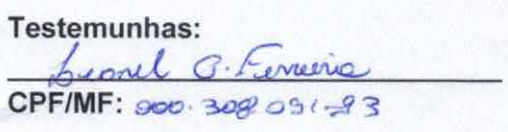 Testemunhas:
Leonel G. Ferreira
CPF/MF: 900.308.091-93